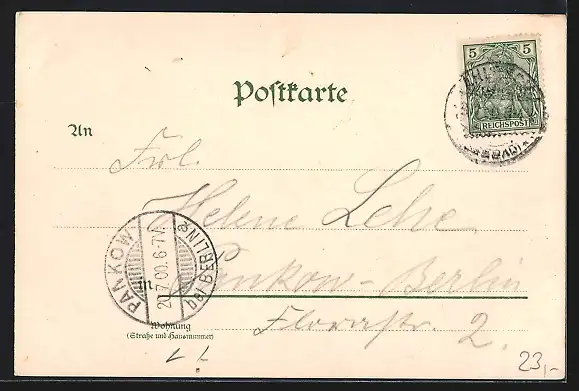 5 5
REICHSPOST
Postkarte
An
Frl.
Helene Lehe
in Pankow-Berlin
PANKOW
20.7.00.6-7V.
bei BERLIN
Florastr. 2.
Wohnung
(Straße und Hausnummer)
23,-